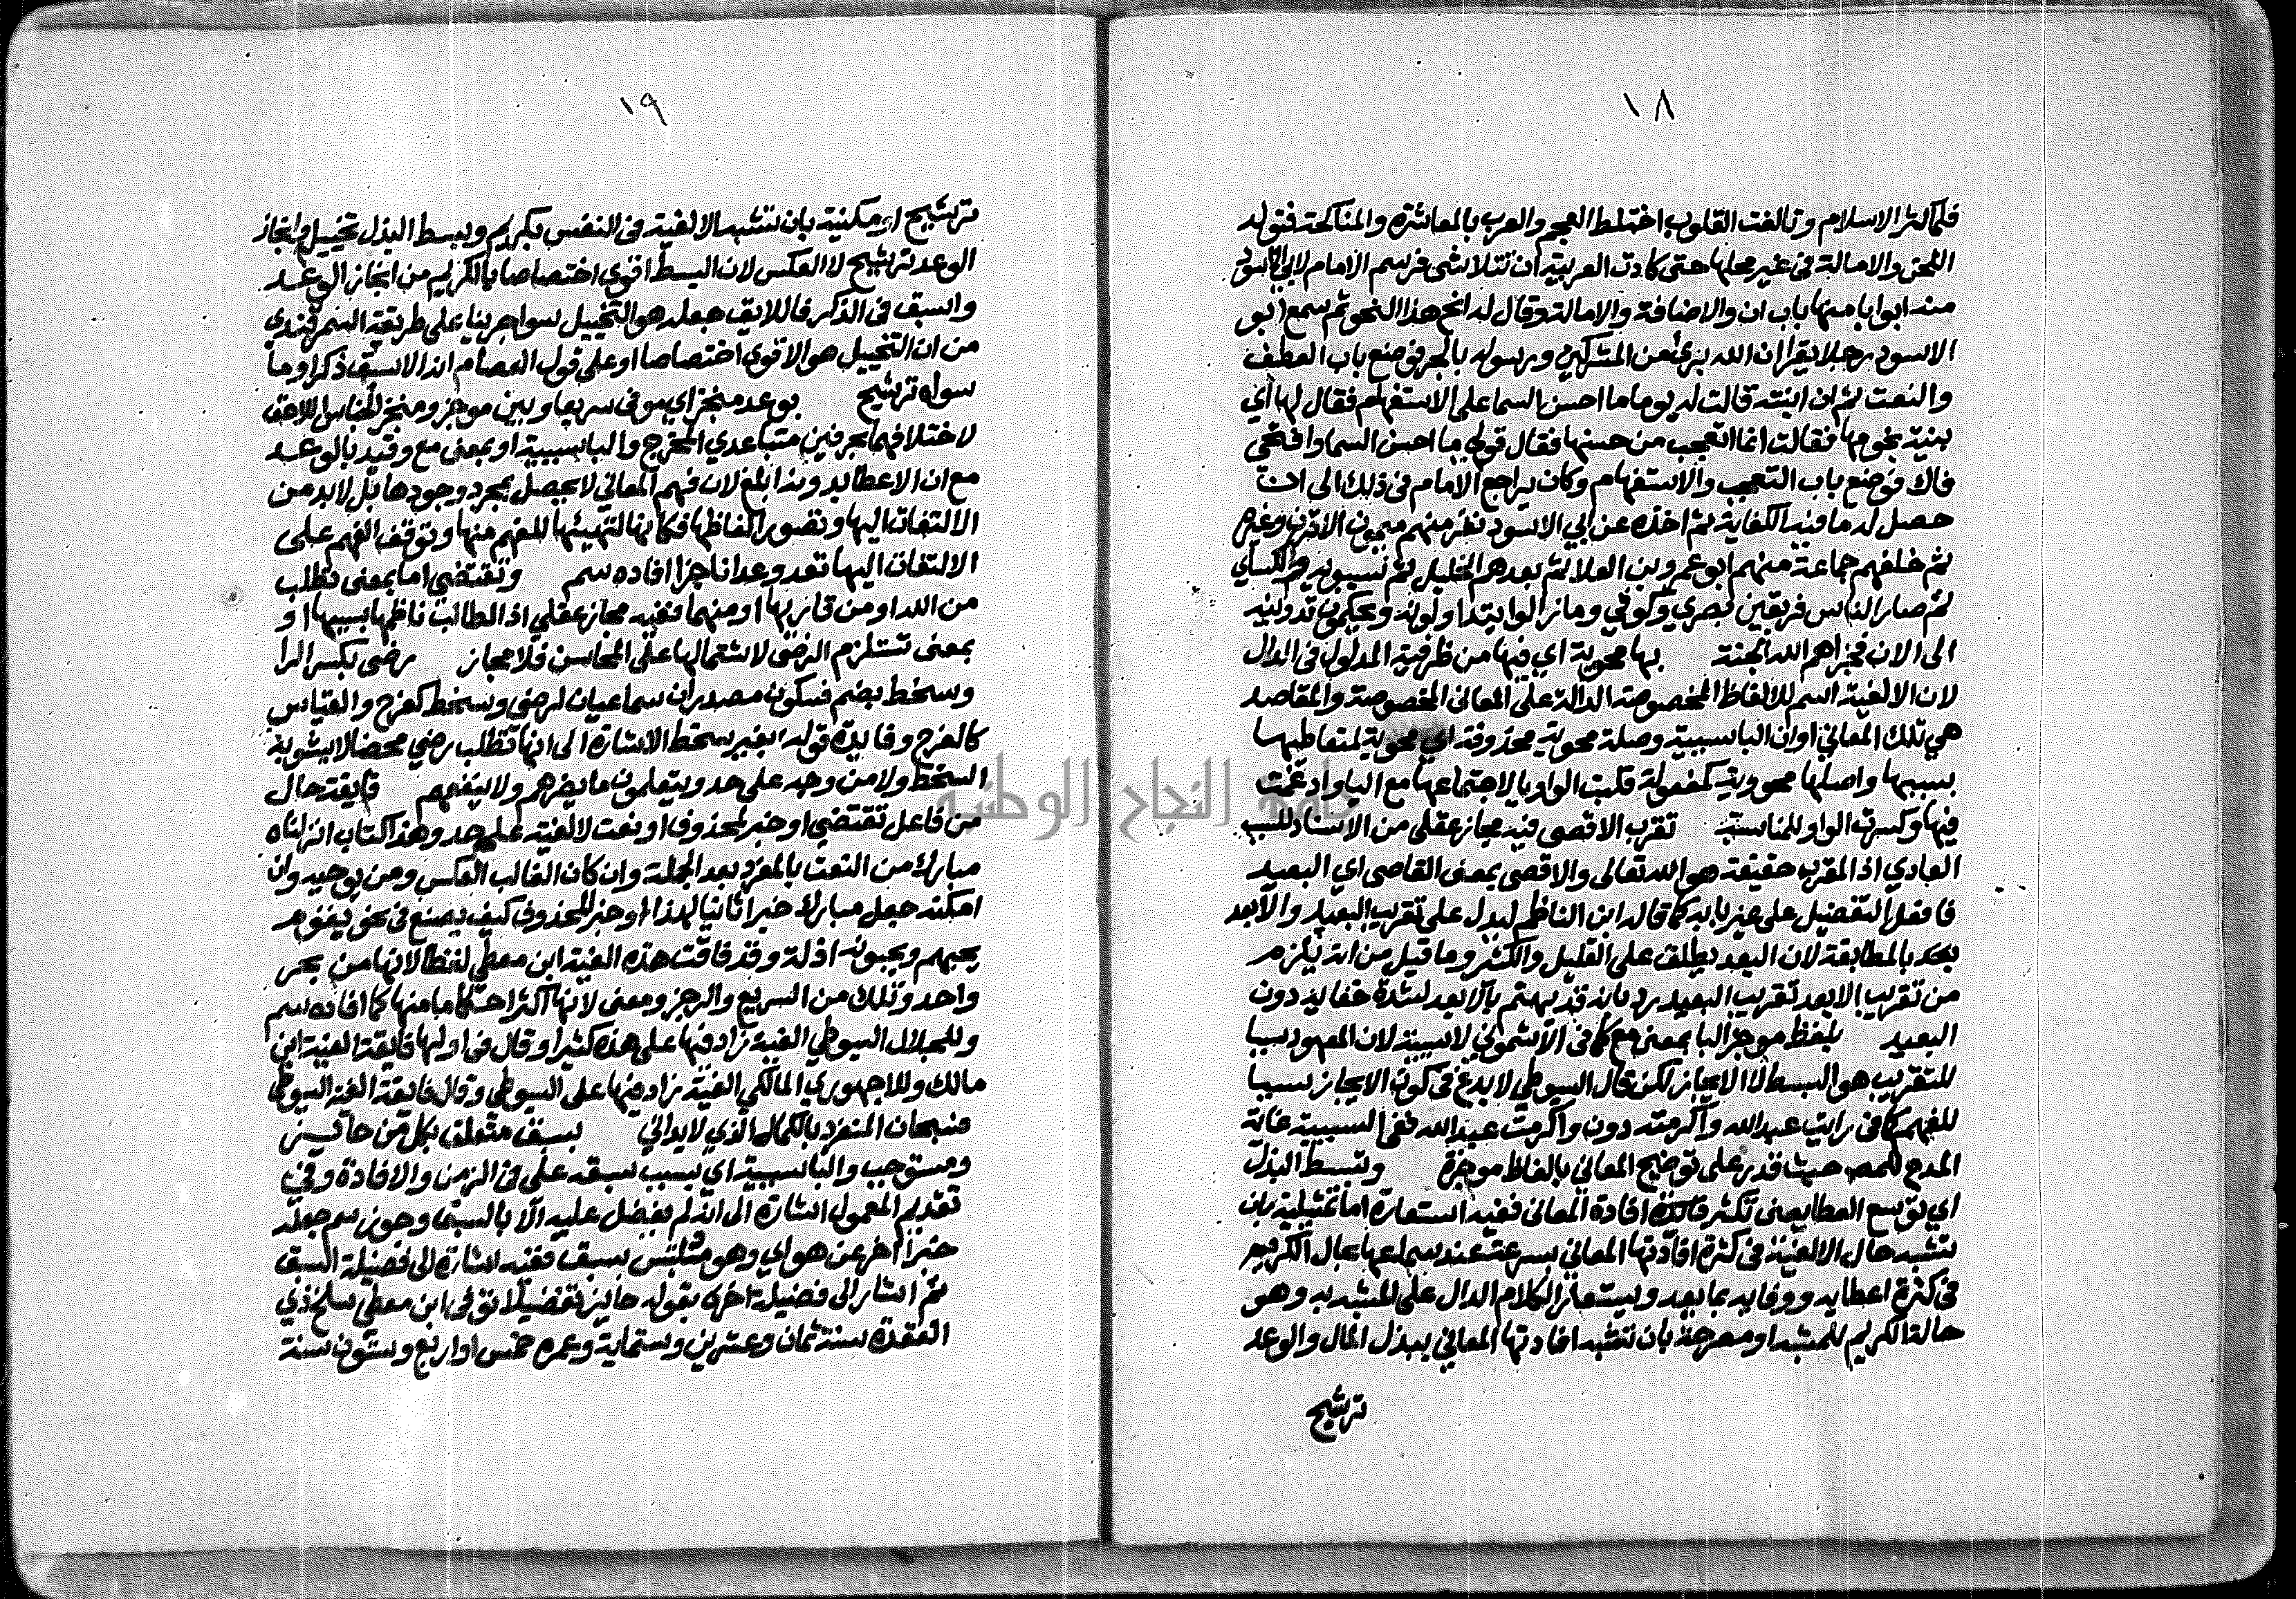 ١٨
فلما كثر الاسلام وتالفت القلوب اختلط العجم والعرب بالمعاشرة والمناكحة فتولد
اللحن والامالة في غير محلها حتى كادت العربية ان تتلاشى فرسم الامام لابي الاسود
منه ابوابا منها باب ان والاضافة والامالة وقال له انح هذا النحو ثم سمع ابو
الاسود رجلا يقرا ان الله برئ من المشركين ورسوله بالجر فوضع باب العطف
والنعت ثم ان ابنته قالت له يوما ما احسن السما على الاستفهام فقال لها اي
بنية نجومها فقالت انما اتعجب من حسنها فقال قولي ما احسن السما وافتحي
فاك فوضع باب التعجب والاستفهام وكان يراجع الامام في ذلك الى ان
حصل له ما فيه الكفاية ثم اخذه عن ابي الاسود نفر منهم ميمون الاقرن وغيره
ثم خلفهم جماعة منهم ابو عمرو بن العلا ثم بعدهم الخليل ثم سيبويه والكساي
ثم صار الناس فريقين بصري وكوفي وما زالوا يتداولونه ويحكمون تدوينه
الى الان فجزاهم الله الجنة بها محوية اي فيها من ظرفية المدلول في الدال
لان الالفية اسم للالفاظ المخصوصة الدالة على المعاني المخصوصة والمقاصد
هي تلك المعاني او ان البا سببية وصلة محوية محذوفة اي محوية لمتعاطيها
بسببها واصلها محووية كمفعولة قلبت الواو يا لاجتماعها مع اليا وادغمت
فيها وكسرت الواو للمناسبة تقرب الاقصى فيه مجاز عقلي من الاسناد للسبب
العادي اذ المقرب حقيقة هو الله تعالى والاقصى بمعنى القاصي اي البعيد
فافعل التفضيل على غير بابه كما قاله ابن الناظم ليدل على تقريب البعيد والابعد
بعد بالمطابقة لان البعد يطلق على القليل والكثير وما قيل من انه يلزم
من تقريب الابعد تقريب البعيد رد بانه قد يهتم بالابعد لشدة خفايه دون
البعيد بلفظ موجز البا بمعنى مع كما في الاشموني لا سببية لان المعهود سببا
للتقريب هو البسط لا الايجاز لكن قال السيوطي لا بدع في كون الايجاز سببا
للفهم كما في رايت عبد الله واكرمته دون واكرمت عبد الله ففي السببية غاية
المدح للمص حيث قدر على توضيح المعاني بالفاظ موجزة وتبسط البذل
اي توسع العطا بمعنى تكثر افادة المعاني ففيه استعارة اما تمثيلية بان
تشبه حال الالفية في كثرة افادتها المعاني بسرعة عند سماعها بحال الكريم
في كثرة اعطايه ووفايه بما يعد ويستعار الكلام الدال على المشبه به وهو
حالة الكريم للمشبه او مصرحة بان تشبه افادتها المعاني ببذل المال والوعد
ترشيح
١٩
ترشيح او مكنية بان تشبه الالفية في النفس بكريم وبسط البذل تخييل وانجاز
الوعد ترشيح لا العكس لان البسط اقوى اختصاصا بالكريم من انجاز الوعد
واسبق في الذكر فاللايق جعله هو التخييل سوا جرينا على طريقة السمرقندي
من ان التخييل هو الاقوى اختصاصا او على قول العصام انه الاسبق ذكرا وما
سواه ترشيح بوعد منجز اي موفى سريعا وبين موجز ومنجز الجناس اللاحق
لاختلافهما بحرفين متباعدي المخرج والبا سببية او بمعنى مع وقيد بالوعد
مع ان الاعطا بدونه ابلغ لان فهم المعاني لا يحصل بمجرد وجودها بل لا بد من
الالتفات اليها وتصور الفاظها فكانها لتهيئها للفهم منها وتوقف الفهم على
الالتفات اليها تعد وعدا ناجزا افاده سم وتقتضي اما بمعنى تطلب
من الله او من قاريها او منهما ففيه مجاز عقلي اذ الطالب ناظمها بسببها او
بمعنى تستلزم الرضى لاشتمالها على المحاسن فلا مجاز رضى بكسر الرا
وسخط بضم فسكون مصدران سماعيان لرضي وسخط كفرح والقياس
كالفرح وفايدة قوله بغير سخط الاشارة الى انها تطلب رضي محضا لا يشوبه
السخط ولا من وجه على حد ويتعلمون ما يضرهم ولا ينفعهم فايقة حال
من فاعل تقتضي او خبر لمحذوف او نعت لالفية على حد وهذا كتاب انزلناه
مبارك من النعت بالمفرد بعد الجملة وان كان الغالب العكس ومن يوجبه وان
امكنه جعل مبارك خبرا ثانيا لهذا او خبر المحذوف كيف يصنع في نحو بقوم
يحبهم ويحبونه اذلة وقد فاقت هذه الفية ابن معطي لفظا لانها من بحر
واحد وتلك من السريع والرجز ومعنى لانها اكثر احكاما منها كما افاده سم
وللجلال السيوطي الفية زاد فيها على هذه كثيرا وقال في اولها فايقة الفية ابن
مالك وللاجهوري المالكي الفية زاد فيها على السيوطي وقال فايقة الفية السيوطي
فسبحان المنفرد بالكمال الذي لا يدانى بسبق متعلق بكل من حايز
ومستوجب والبا سببية اي بسبب سبقه علي في الزمن والافادة وفي
تقديم المعمول اشارة الى انه لم يفضل عليه الا بالسبق وجوز سم جعله
خبرا اخر عن هو اي وهو متلبس بسبق ففيه اشارة الى فضيلة السبق
ثم اشار الى فضيلة اخرى بقوله حايز تفضيلا توفي ابن معطي سلخ ذي
القعدة سنة ثمان وعشرين وستماية وعمره خمس او اربع وستون سنة
جامعة النجاح الوطنية